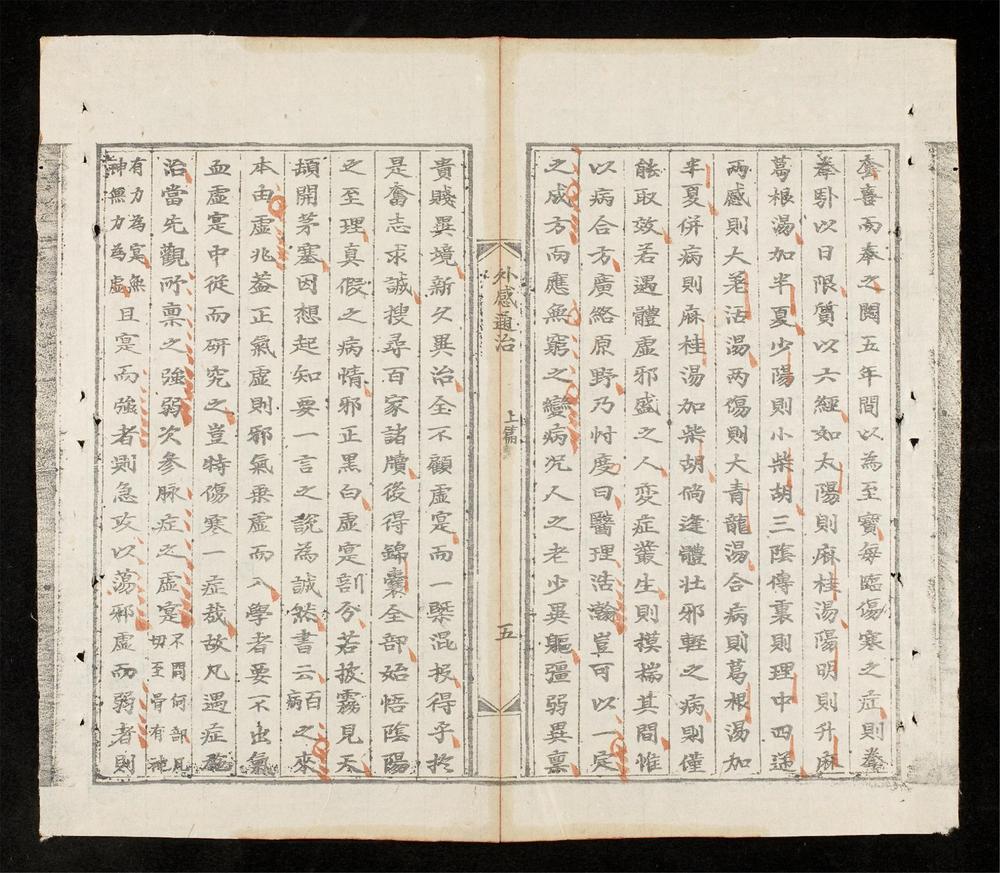 喜而奉之閱五年間以為至寶每臨傷寒之症則拳
拳卧以日限質以六經如太陽則麻桂湯陽明則升麻
葛根湯加半夏少陽則小柴胡三陰傳裏則理中四逆
兩感則大羌活湯两傷則大青龍湯合病則葛根湯加
半夏併病則麻桂湯加柴胡倘逢體壯邪輕之病則僅
能取效若遇體虛邪盛之人変症叢生則摸揣其間惟
以病合方廣絡原野乃忖度曰醫理浩瀚豈可以一定
之成方而應無窮之變病况人之老少異軀彊弱異稟
外感通治 上篇 五
貴賤異境新久異治全不顧虛寔而一槩混投得乎於
是奮志求誠搜尋百家諸牘後得錦囊全部始悟陰陽
之至理真假之病情邪正黑白虛寔剖分若披霧見天
頓開茅塞因想起知要一言之說為誠然書云百病之來
本由虛兆葢正氣虛則邪氣乗虛而入學者要不出氣
血虛寔中従而研究之豈特傷寒一症哉故凡遇症施
治當先觀所稟之強弱次參脉症之虛寔不問何部凡切至骨有神
有力為寔無神無力為虛且寔而強者則急攻以蕩邪虛而弱者則